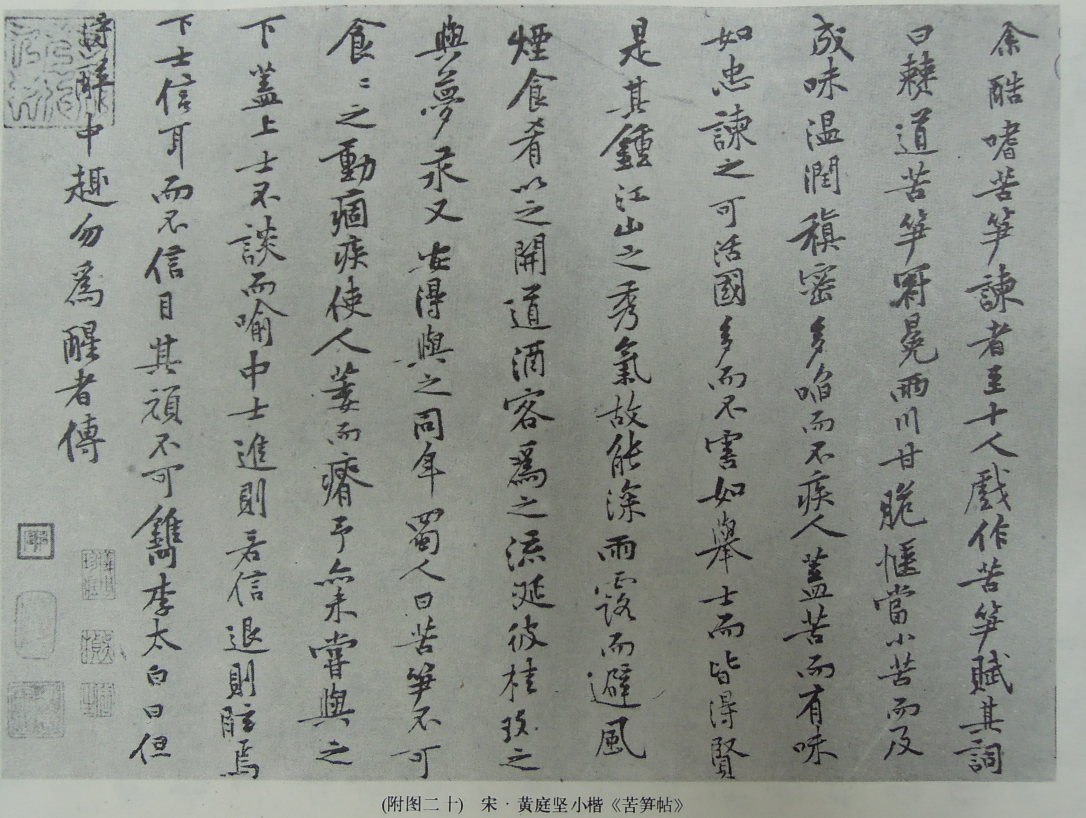 余酷嗜苦笋諫者至十人戲作苦笋賦其詞
曰僰道苦笋冠冕兩川甘脆愜當小苦而反
成味温潤稹密多啗而不疾人蓋苦而有味
如忠諫之可活國多而不害如舉士而皆得賢
是其鍾江山之秀氣故能深雨露而避風
煙食肴以之開道酒客爲之流涎彼桂玫之
與夢汞又安得與之同年蜀人曰苦笋不可
食〻之動痼疾使人萎而瘠予亦未嘗與之
下蓋上士不談而喻中士進則若信退則眩焉
下士信耳而不信目其頑不可鐫李太白曰但
得醉中趣勿爲醒者傳
(附图二十) 宋·黄庭坚小楷《苦笋帖》